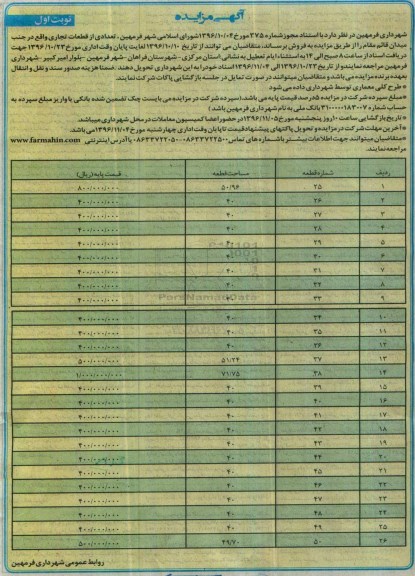 نوبت اول
آگهی مزایده
شهرداری فرمهین در نظر دارد با استناد مجوز شماره ۲۷۵ مورخ ۱۳۹۶/۱۰/۰۴ شورای اسلامی شهر فرمهین، تعدادی از قطعات تجاری واقع در جنب
میدان قائم مقام را از طریق مزایده به فروش برساند، متقاضیان می توانند از تاریخ ۱۳۹۶/۱۰/۱۰ لغایت پایان وقت اداری مورخ ۱۳۹۶/۱۰/۲۳ جهت
دریافت اسناد از ساعت ۸ صبح الی ۱۴ به استثناء ایام تعطیل به نشانی: استان مرکزی - شهرستان فراهان - شهر فرمهین - بلوار امیرکبیر - شهرداری
فرمهین مراجعه نمایند و از تاریخ ۱۳۹۶/۱۰/۲۳ الی ۱۳۹۶/۱۱/۰۴ اسناد خود را به این شهرداری تحویل دهند. ضمنا هزینه صدور سند و نقل و انتقال
بعهده برنده مزایده می باشد و متقاضیان میتوانند در صورت تمایل در جلسه بازگشایی پاکات شرکت نمایند.
* طرح کلی معماری توسط شهرداری داده می شود
* مبلغ سپرده شرکت در مزایده ۵ درصد قیمت پایه می باشد (سپرده شرکت در مزایده می بایست چک تضمین شده بانکی یا واریز مبلغ سپرده به
حساب شماره ۳۱۰۰۰۰۱۸۳۰۰۷ بانک ملی به نام شهرداری فرمهین باشد)
* تاریخ بازگشایی ساعت ۱۰ روز پنجشنبه مورخ ۱۳۹۶/۱۱/۰۵ در حضور اعضا کمیسیون معاملات در محل شهرداری میباشد.
* آخرین مهلت شرکت در مزایده و تحویل پاکتهای پیشنهاد قیمت تا پایان وقت اداری چهارشنبه مورخ ۱۳۹۶/۱۱/۰۴ می باشد.
* متقاضیان میتوانند جهت اطلاعات بیشتر با شماره های تماس ۰۸۶۳۳۷۲۲۵۰۰-۰۸۶۳۳۷۲۲۰۵۰ یا آدرس اینترنتی www.farmahin.com
مراجعه نمایند.
ردیف شماره قطعه مساحت قطعه قیمت پایه (ریال)
۱ ۲۵ ۵۰/۹۶ ۸۰۰/۰۰۰/۰۰۰
۲ ۲۶ ۴۰ ۴۰۰/۰۰۰/۰۰۰
۳ ۲۷ ۴۰ ۴۰۰/۰۰۰/۰۰۰
۴ ۲۸ ۴۰ ۴۰۰/۰۰۰/۰۰۰
۵ ۲۹ ۴۰ ۴۰۰/۰۰۰/۰۰۰
۶ ۳۰ ۴۰ ۴۰۰/۰۰۰/۰۰۰
۷ ۳۱ ۴۰ ۴۰۰/۰۰۰/۰۰۰
۸ ۳۲ ۴۰ ۴۰۰/۰۰۰/۰۰۰
۹ ۳۳ ۴۰ ۴۰۰/۰۰۰/۰۰۰
۱۰ ۳۴ ۴۰ ۴۰۰/۰۰۰/۰۰۰
۱۱ ۳۵ ۴۰ ۴۰۰/۰۰۰/۰۰۰
۱۲ ۳۶ ۴۰ ۴۰۰/۰۰۰/۰۰۰
۱۳ ۳۷ ۵۱/۲۴ ۵۰۰/۰۰۰/۰۰۰
۱۴ ۳۸ ۷۱/۷۵ ۱/۰۰۰/۰۰۰/۰۰۰
۱۵ ۳۹ ۴۰ ۴۰۰/۰۰۰/۰۰۰
۱۶ ۴۰ ۴۰ ۴۰۰/۰۰۰/۰۰۰
۱۷ ۴۱ ۴۰ ۴۰۰/۰۰۰/۰۰۰
۱۸ ۴۲ ۴۰ ۴۰۰/۰۰۰/۰۰۰
۱۹ ۴۳ ۴۰ ۴۰۰/۰۰۰/۰۰۰
۲۰ ۴۴ ۴۰ ۴۰۰/۰۰۰/۰۰۰
۲۱ ۴۵ ۴۰ ۴۰۰/۰۰۰/۰۰۰
۲۲ ۴۶ ۴۰ ۴۰۰/۰۰۰/۰۰۰
۲۳ ۴۷ ۴۰ ۴۰۰/۰۰۰/۰۰۰
۲۴ ۴۸ ۴۰ ۴۰۰/۰۰۰/۰۰۰
۲۵ ۴۹ ۴۰ ۴۰۰/۰۰۰/۰۰۰
۲۶ ۵۰ ۴۹/۷۰ ۵۰۰/۰۰۰/۰۰۰
روابط عمومی شهرداری فرمهین
ParsNamadData